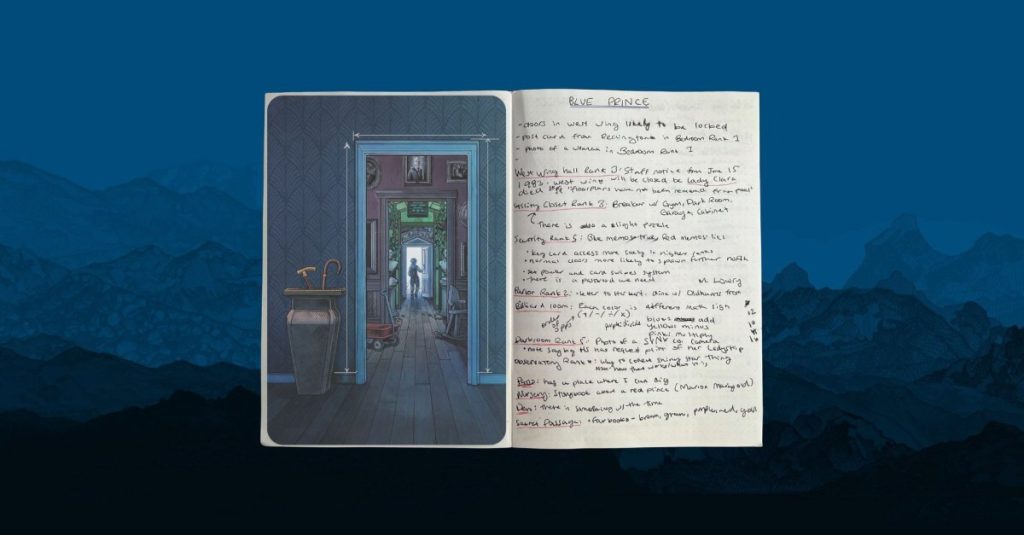 BLUE PRINCE
- doors in west wing likely to be locked
- post card from in Bedroom Rank 1
- photo of a woman in Bedroom Rank 1
-
West Wing Hall Rank : Staff notice from June 15
1982. west wing will be closed bc Lady Clara
died "floorplans have not been removed from pool"
Closet Rank 8: Breaker w/ Gym, Dark Room,
Garage, Cabinet
There is also a slight puzzle
Security Rank 5: Blue memos true, Red memos lies
• key card access more early in higher ranks
• normal doors more likely to spawn further north
• power and card swipes system
- there is a password we need
Parlor Rank 2: • letter to dine w/
Billiard room: Each color is different math sign
(+/-/÷/x) blues add
yellows minus
pinks multiply
Darkroom Rank 5: Photo of a camera
• note saying HS has request print of her Ladyship
Observatory Rank : Way to collect shiny star thing
now how that works/what it is
Patio: has a place where I can dig
Nursery: Storybook about a red prince (Marion Marigold)
Den: there is something w/ the time
Secret Passage: • Four books - brown, green, purple, red, gold